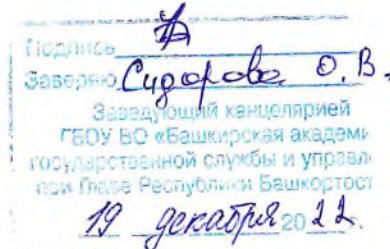 Подпись
Заверяю Сидорова О.В.
Заведующий канцелярией
ГБОУ ВО «Башкирская академи
государственной службы и управл
при Главе Республики Башкортост
19 декабря 20 22.